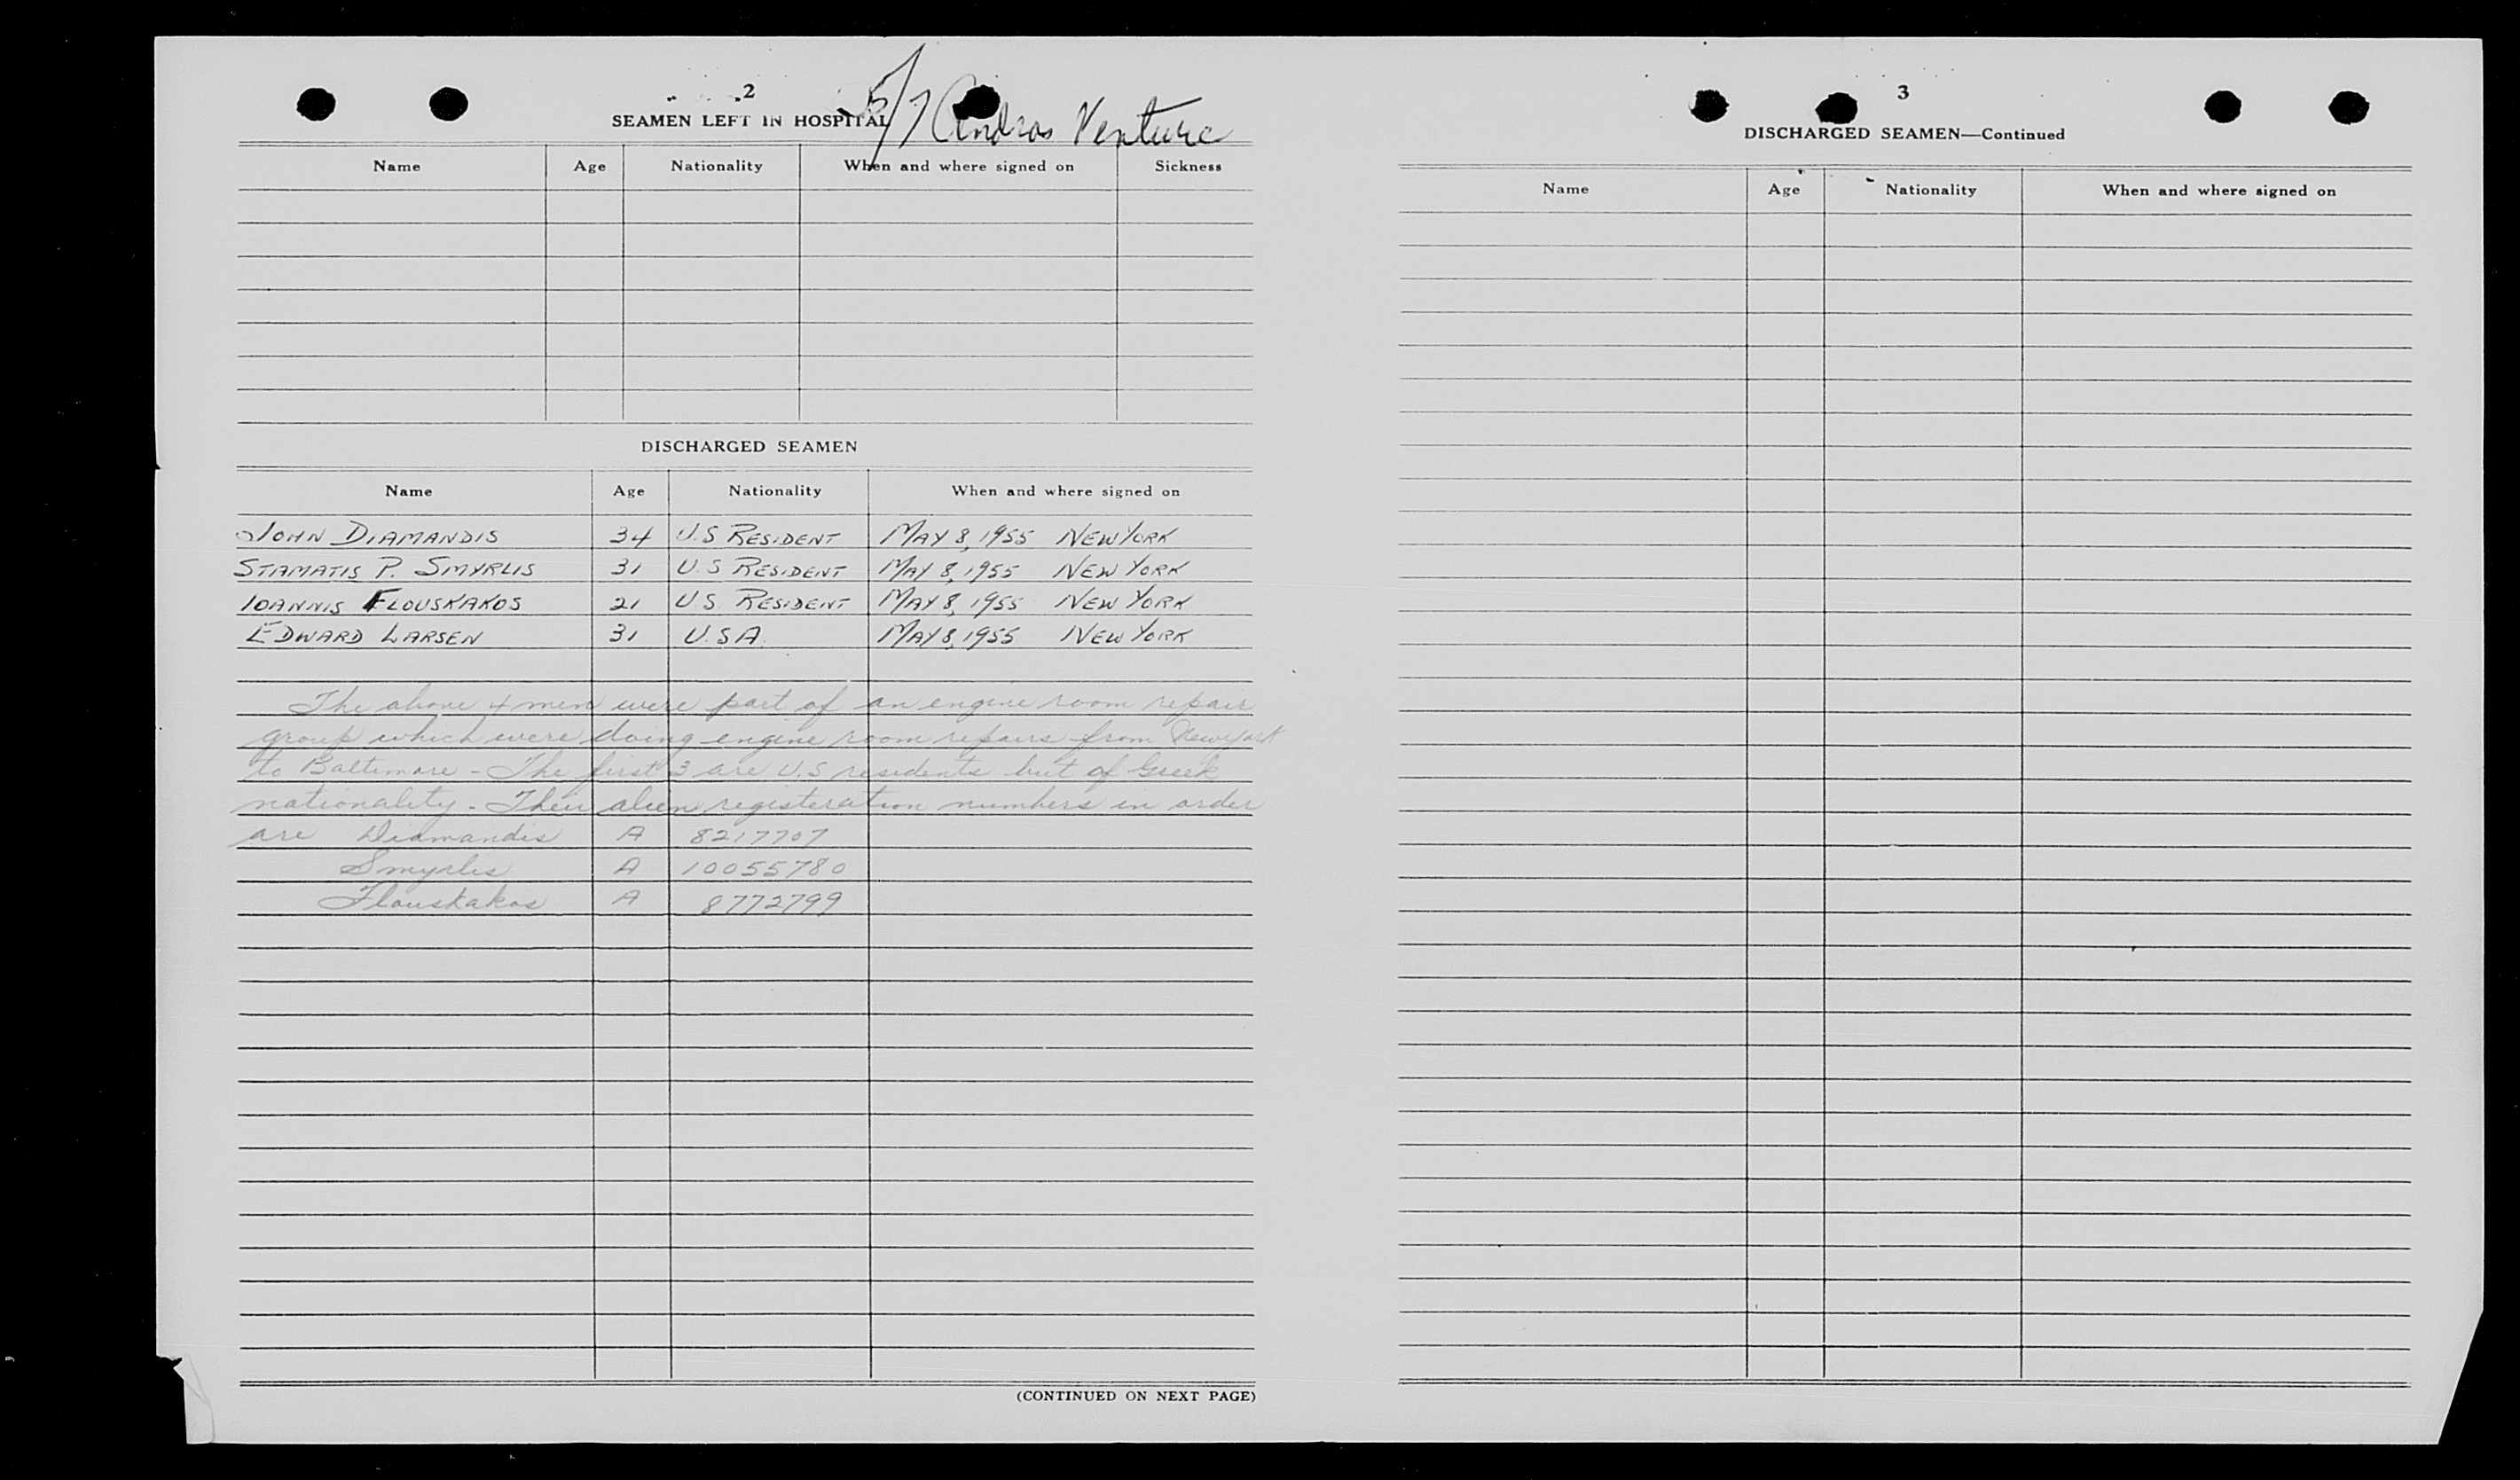 2
SEAMEN LEFT IN HOSPITAL
Andros Venture
Name Age Nationality When and where signed on Sickness
DISCHARGED SEAMEN
Name Age Nationality When and where signed on
JOHN DIAMANDIS 34 U.S RESIDENT MAY 8, 1955 NEW YORK
STAMATIS P. SMYRLIS 31 U.S RESIDENT MAY 8, 1955 NEW YORK
IOANNIS FLOUSKAKOS 21 U.S. RESIDENT MAY 8, 1955 NEW YORK
EDWARD LARSEN 31 U.S.A. MAY 8, 1955 NEW YORK
The above 4 men were part of an engine room repair
group which were doing engine room repairs from New York
to Baltimore - The first 3 are U.S residents but of Greek
nationality - Their alien registeration numbers in order
are Diamandis A 8217707
Smyrlis A 10055780
Flouskakos A 8772799
(CONTINUED ON NEXT PAGE)
3
DISCHARGED SEAMEN—Continued
Name Age Nationality When and where signed on